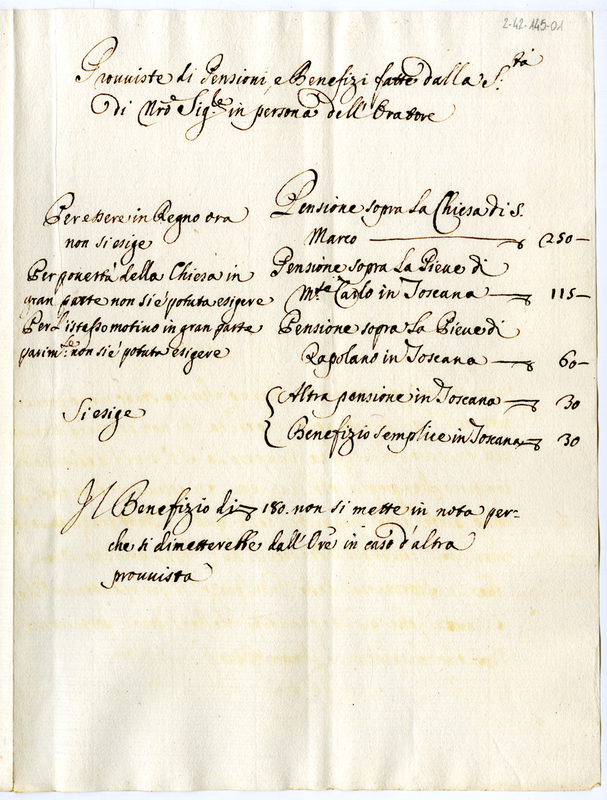 2-42-145-01
Prouuiste di Pensioni, e Benefizi fatte dalla S.tà
di Nrō Sig.re in persona dell' Oratore
Per essere in Regno ora
non si esige
Pensione sopra la Chiesa di S.
Marco 250
Per pouertà della Chiesa in
gran parte non si è potuta esigere
Pensione sopra la Pieue di
M.te Carlo in Toscana 115
Per l'istesso motiuo in gran parte
parim.te non si è potuta esigere
Pensione sopra la Pieue di
Rapolano in Toscana 60
Si esige
Altra pensione in Toscana 30
Benefizio semplice in Toscana 30
Il Benefizio di 180. non si mette in nota per-
che si dimetterebbe dall' Ore in caso d'altra
prouuista